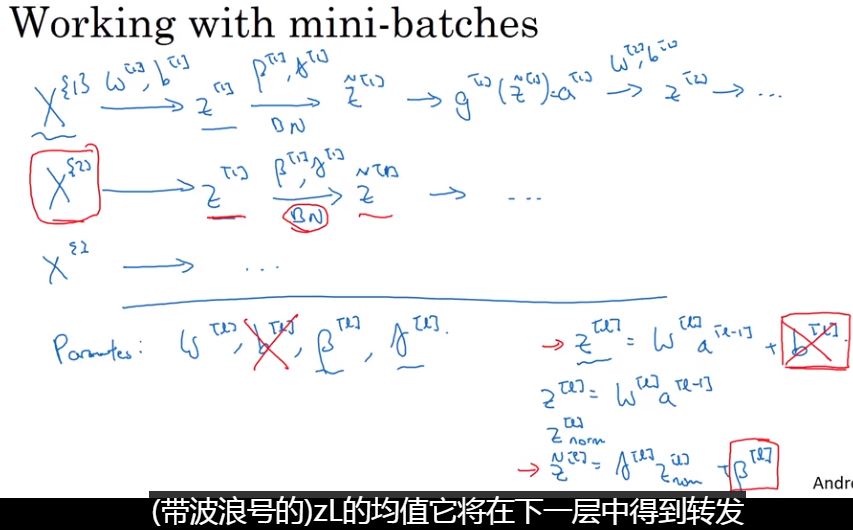 Working with mini-batches
X^{1} W^[1], b^[1] → z^[1] β^[1], γ^[1] → BN z̃^[1] → g^[1](z̃^[1]) = a^[1] W^[2], b^[2] → z^[2] → ...
X^{2} → z^[1] β^[1], γ^[1] → BN z̃^[1] → ...
X^{ } → ...
Parameters: W^[l], b^[l], β^[l], γ^[l].
→ z^[l] = W^[l] a^[l-1] + b^[l].
z^[l] = W^[l] a^[l-1]
z^[l]_norm
→ z̃^[l] = γ^[l] z^[l]_norm + β^[l]
Andre
(带波浪号的)zL的均值它将在下一层中得到转发